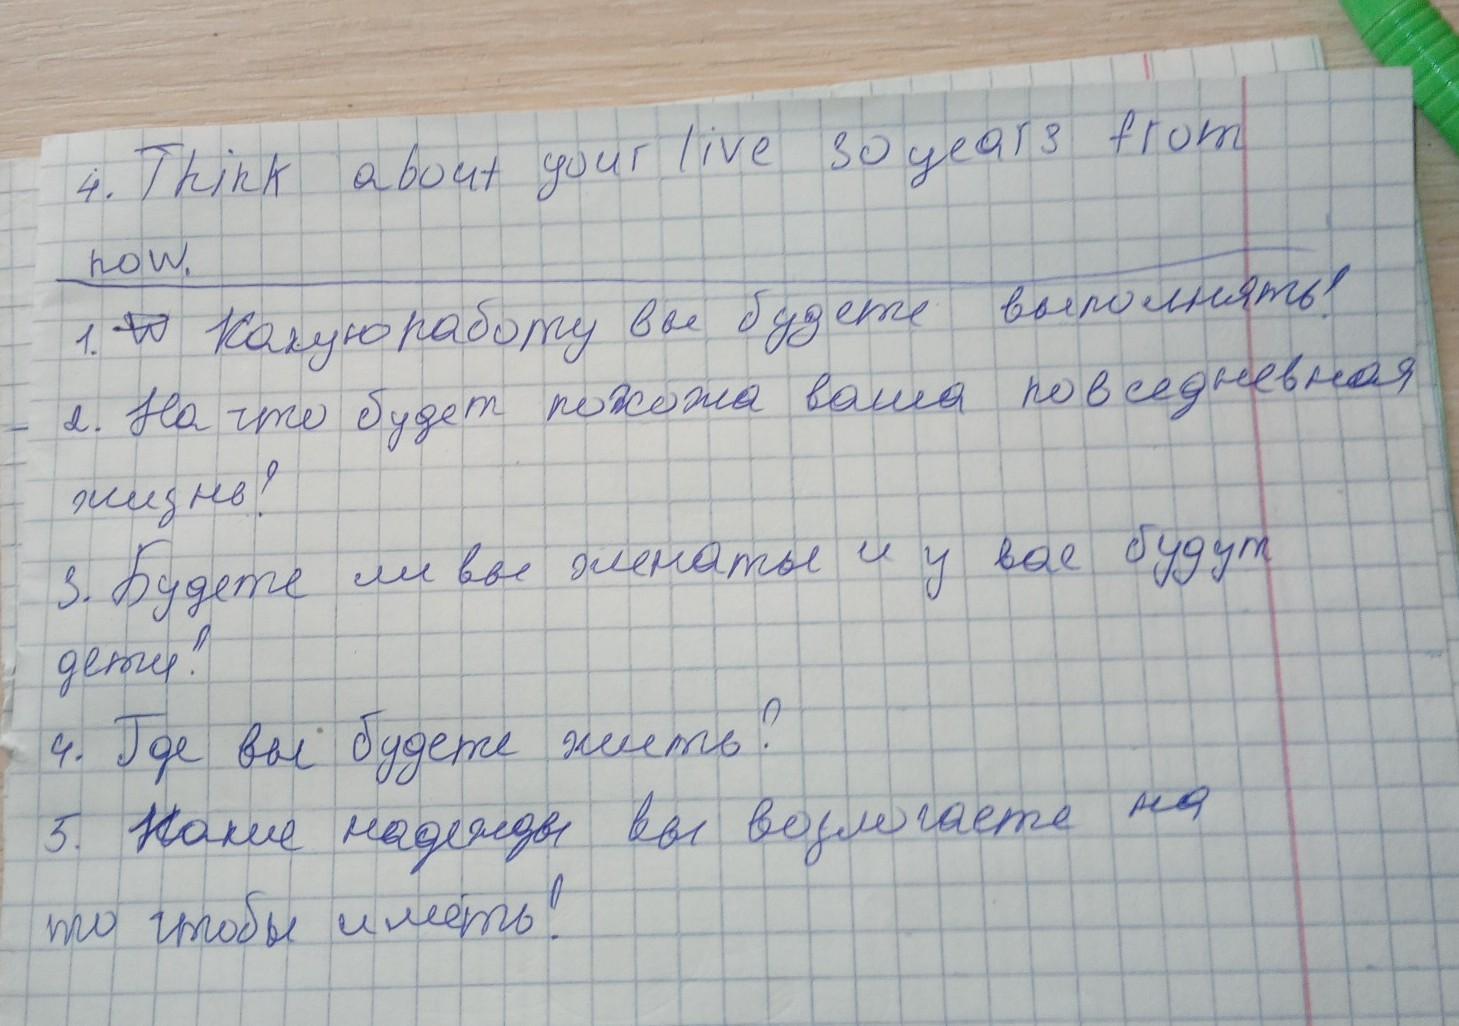 4. Think about your live 30 years from
now.
1. Какую работу вы будете выполнять?
2. На что будет похожа ваша повседневная
жизнь?
3. Будете ли вы женаты и у вас будут
дети?
4. Где вы будете жить?
5. Какие надежды вы возлагаете на
то чтобы иметь?